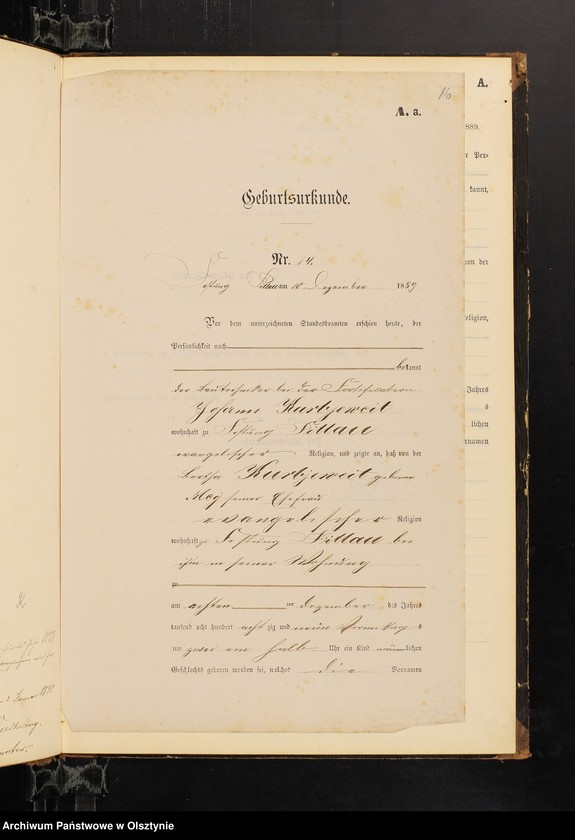 16
A. a.
Geburtsurkunde.
Nr. 14.
Festung Pillau am 10 Dezember 1889
Vor dem unterzeichneten Standesbeamten erschien heute, der
Persönlichkeit nach
bekannt
der Bautechniker bei der Fortifikation
Johann Kurbjeweit
wohnhaft zu Festung Pillau
evangelischer Religion, und zeigte an, daß von der
Bertha Kurbjeweit geborene
seiner Ehefrau
evangelischer Religion
wohnhaft zu Festung Pillau bei
ihm in seiner Wohnung
zu
am achten ten Dezember des Jahres
tausend acht hundert acht zig und neun
um zwei ein halb Uhr ein Kind männlichen
Geschlechts geboren worden sei, welches die Vornamen
A.
1889.
r Per-
kannt,
von der
eligion,
Jahres
s
lichen
rnamen
Archiwum Państwowe w Olsztynie